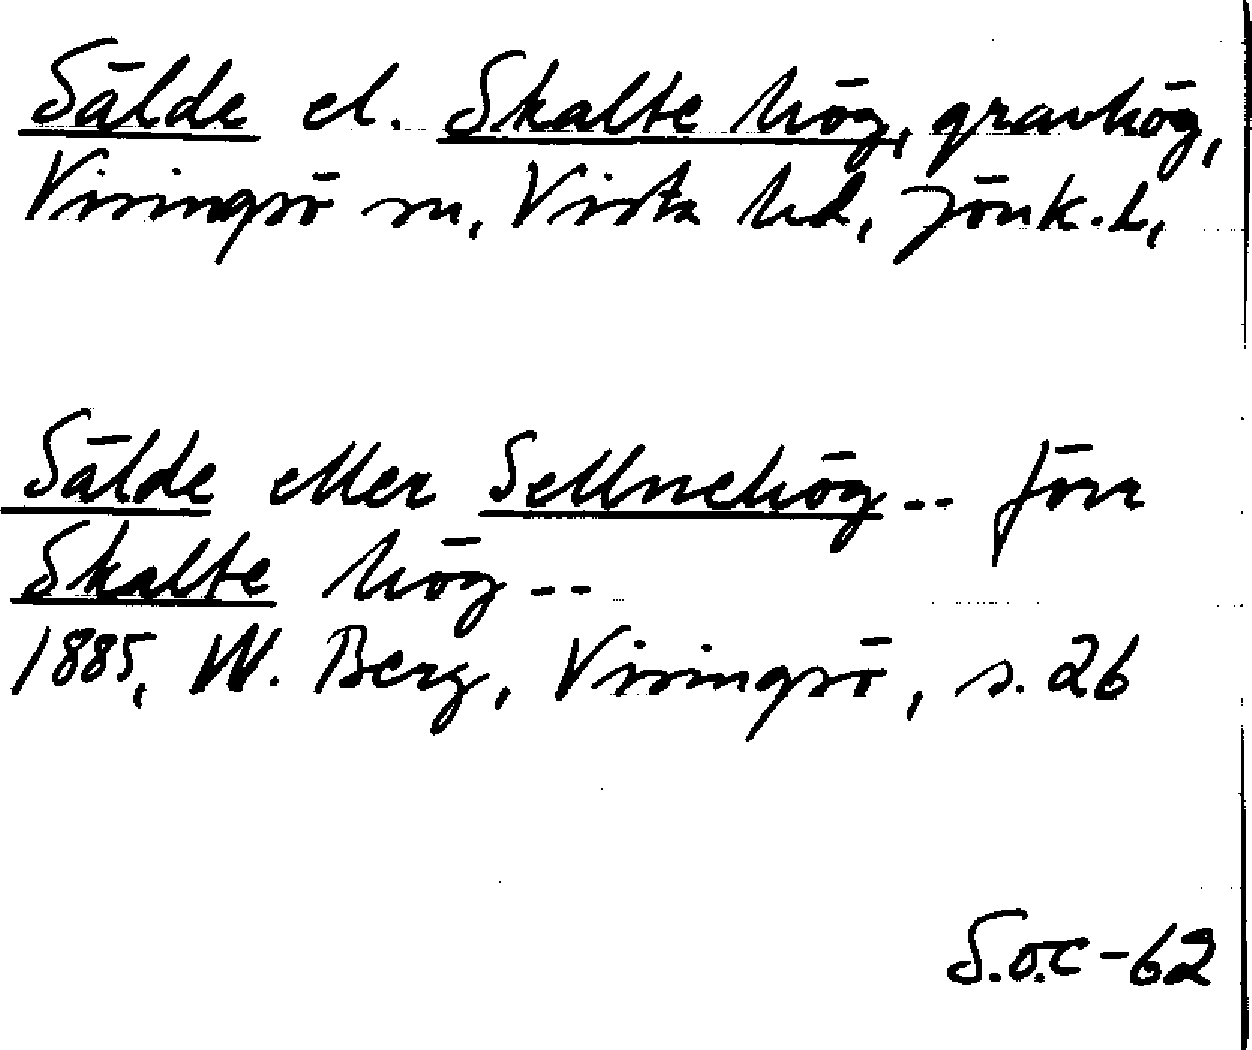 Sälde el. Skalte hög, gravhög,
Visingsö sn, Vista hd, Jönk. L,
Sälde eller Sellnehög -- förr
Skalte hög --
1885, W. Berg, Visingsö, s. 26
S.o.c - 62